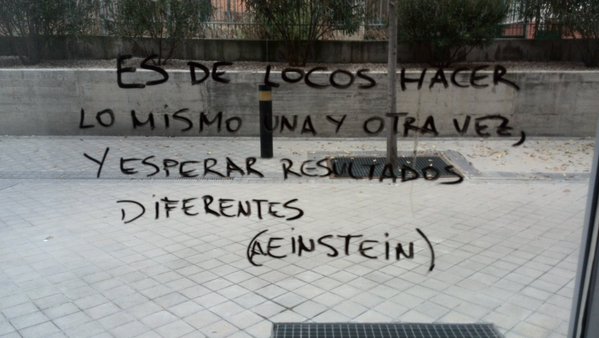 ES DE LOCOS HACER
LO MISMO UNA Y OTRA VEZ,
Y ESPERAR RESULTADOS
DIFERENTES
(A EINSTEIN)